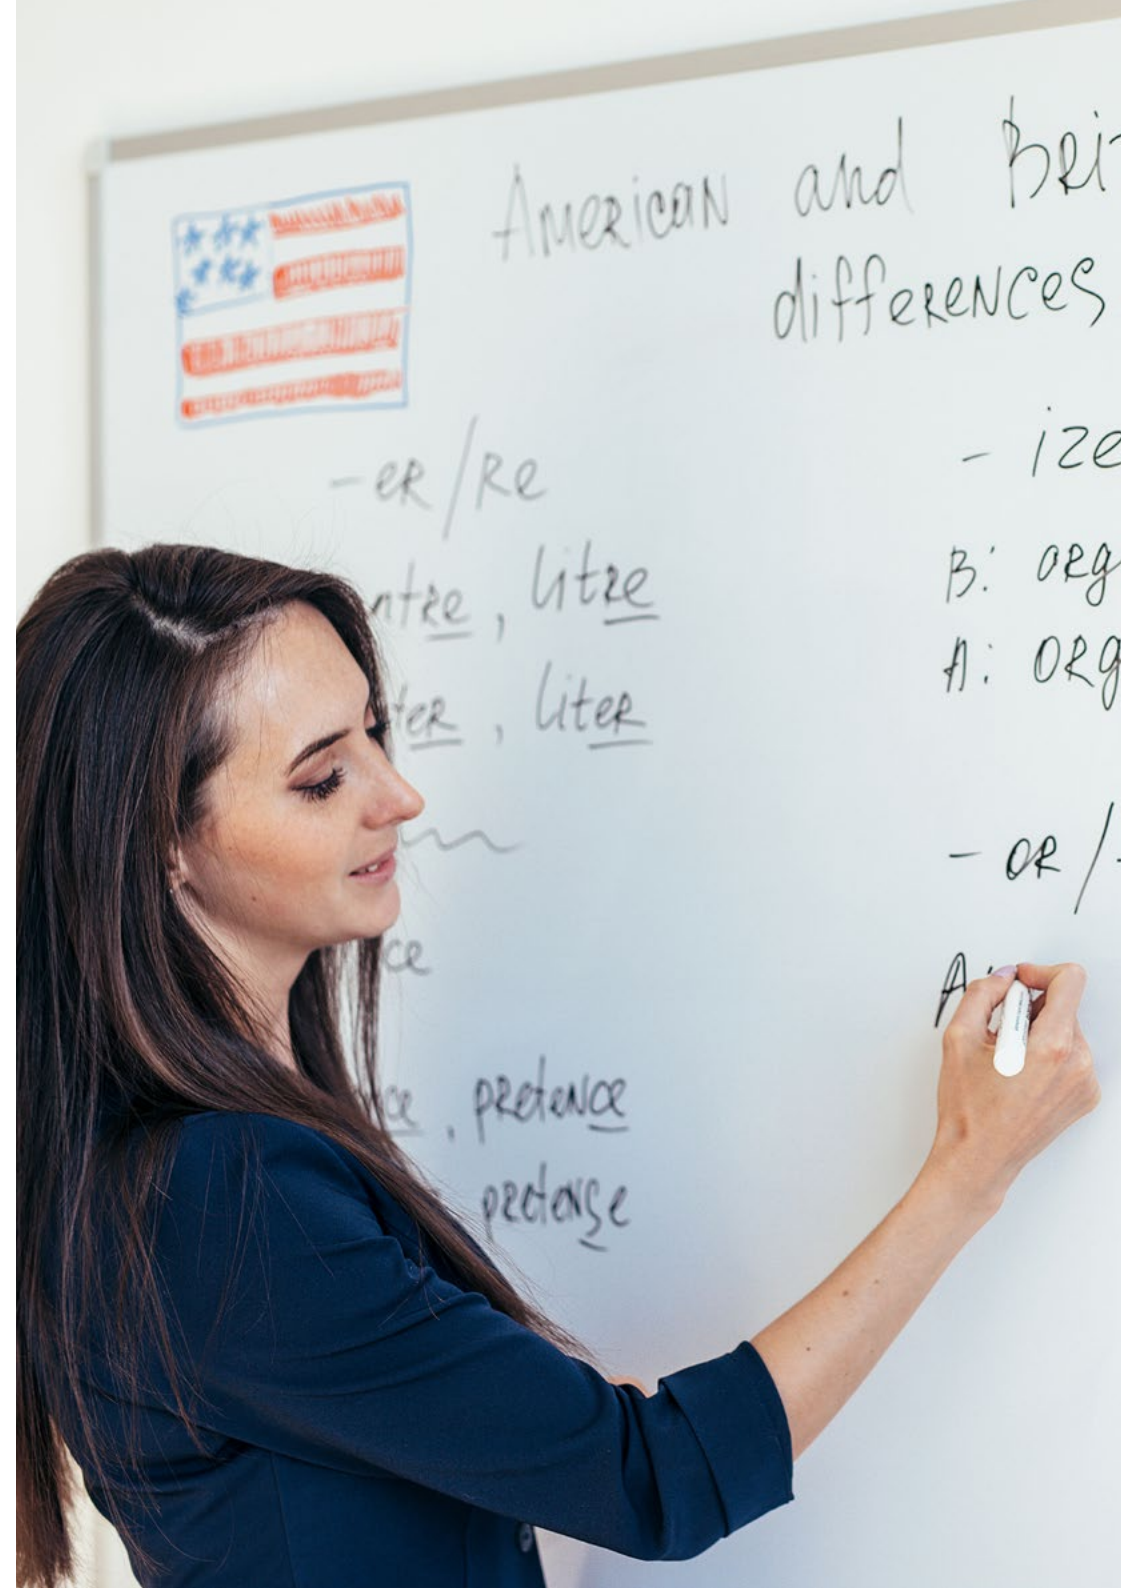 American and Brit
differences
-er/re
ntre, litre
ter, liter
ce
ce, pretence
pretense
- ize
B: org
A: org
- or / -
A: